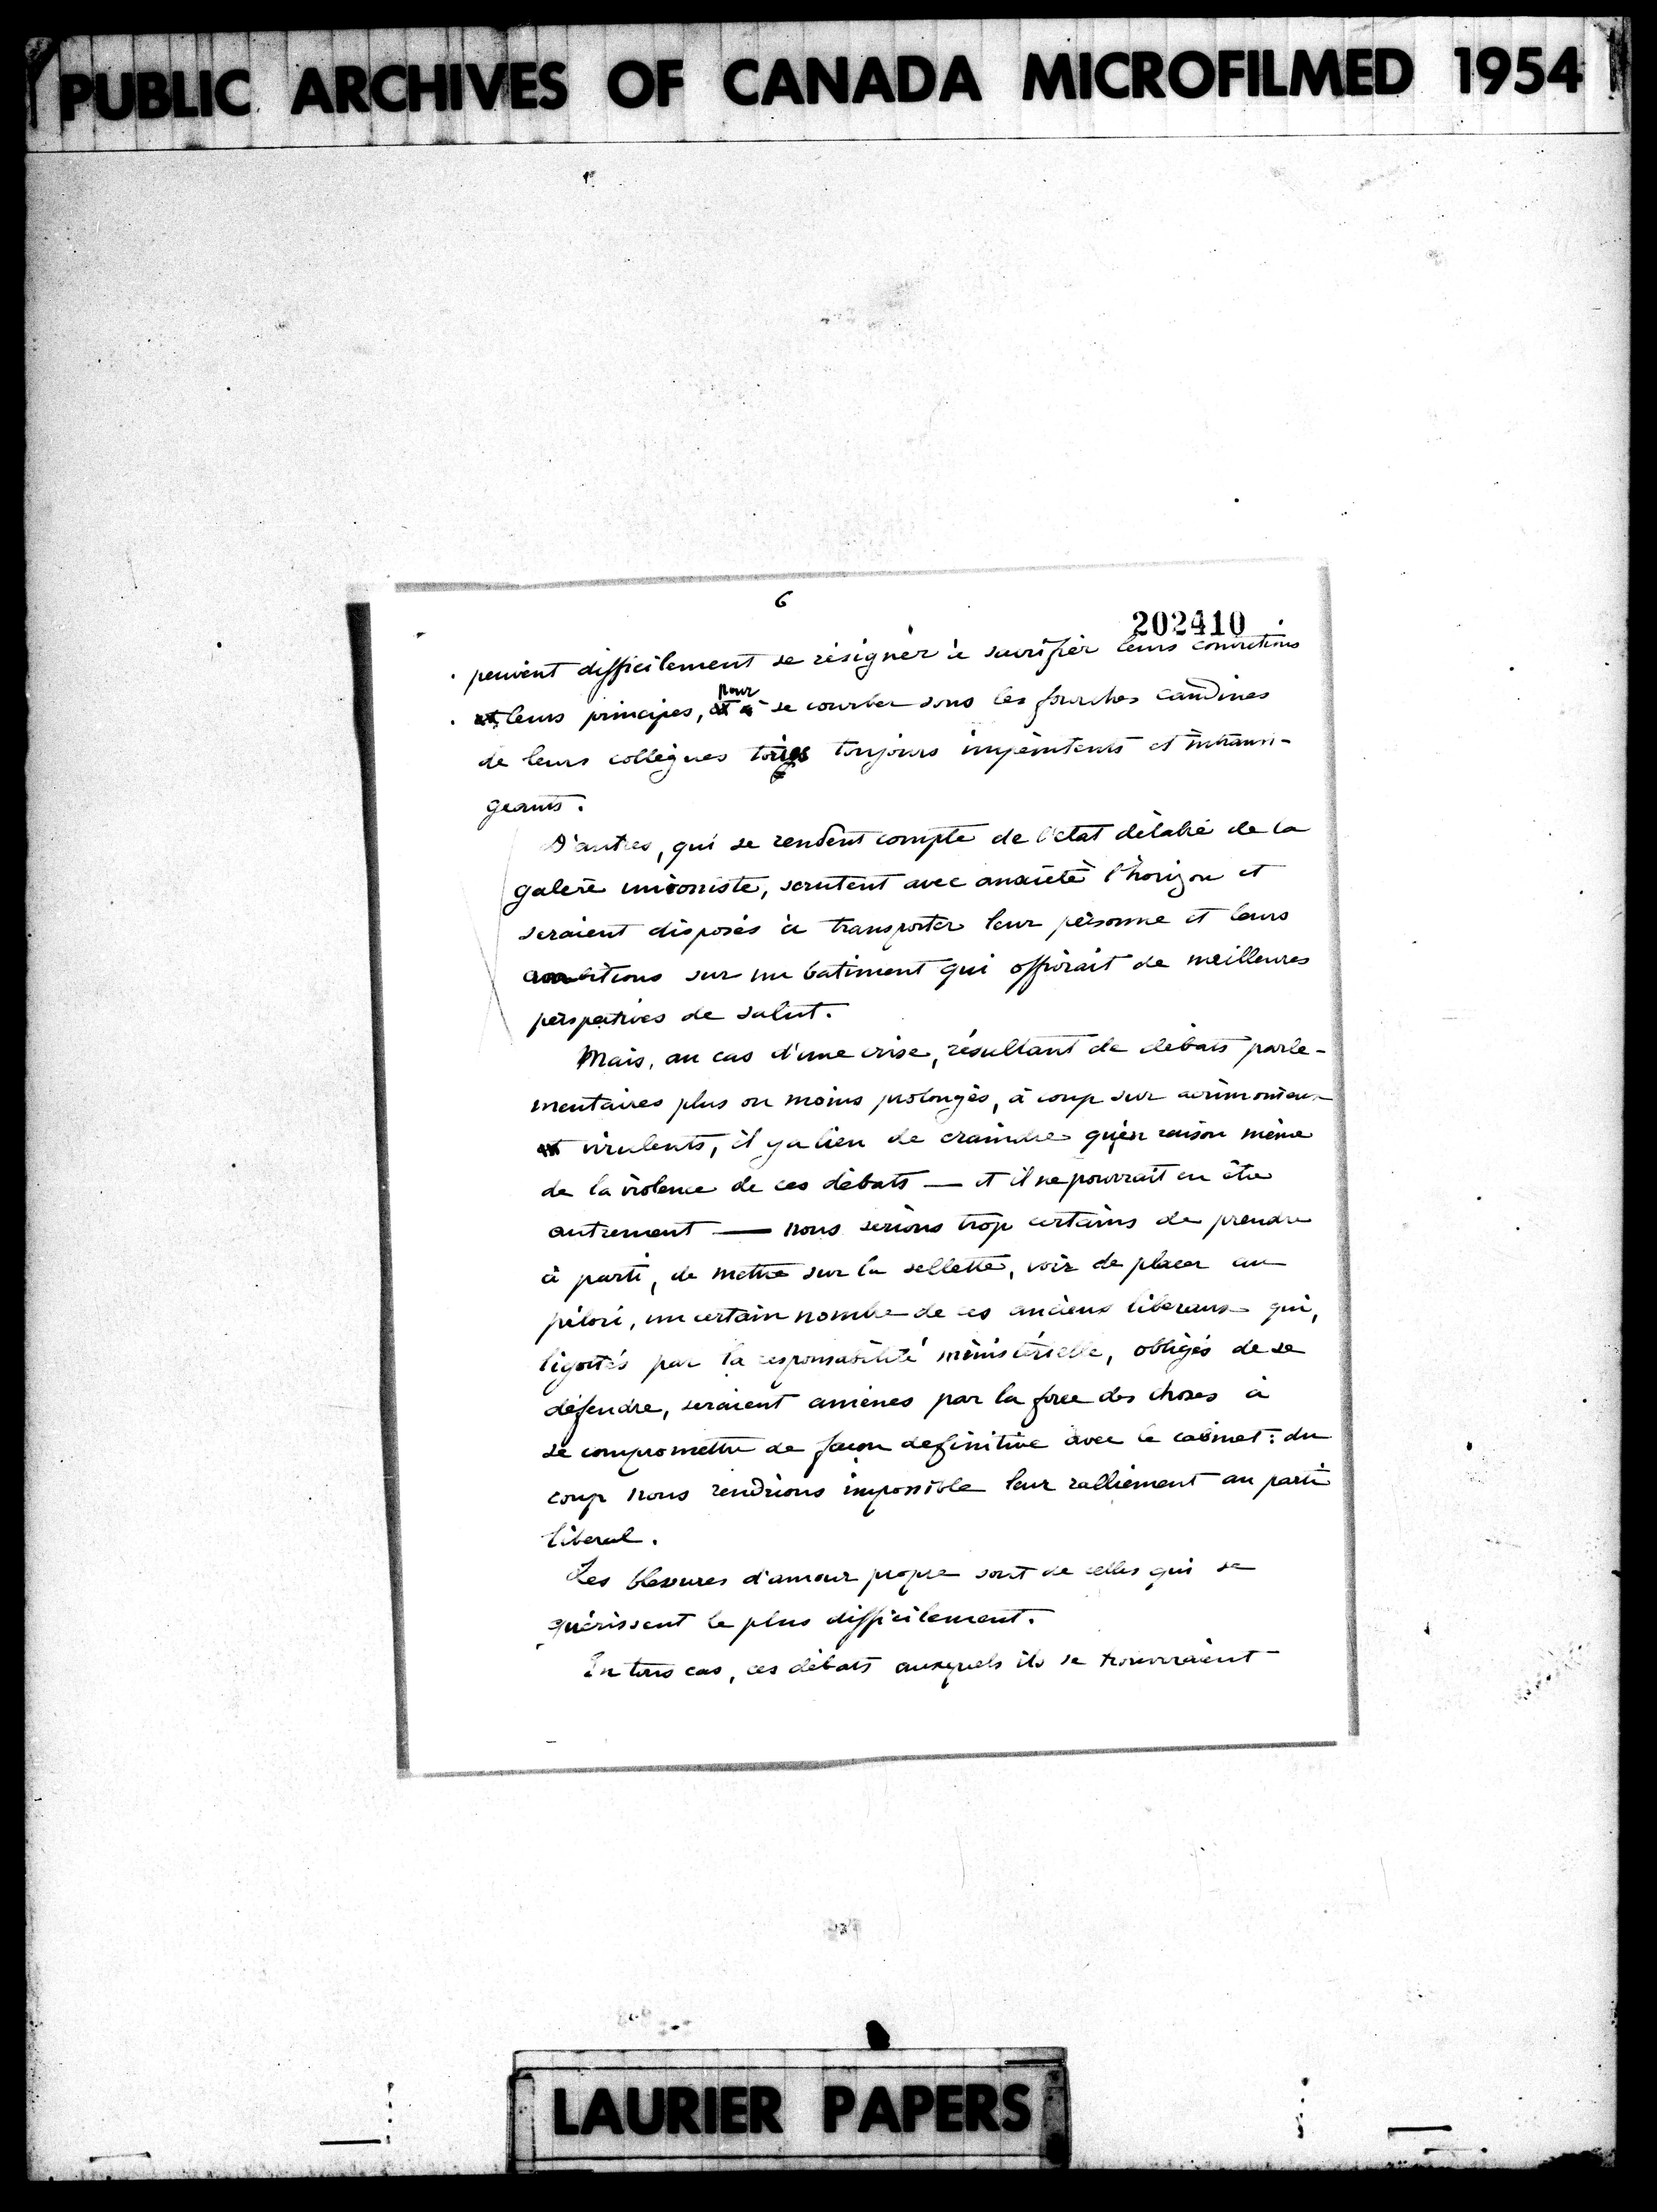 PUBLIC ARCHIVES OF CANADA MICROFILMED 1954
6
202410
peuvent difficilement se résigner à sacrifier leurs convictions
et leurs principes, pour se courber sous les fourches caudines
de leurs collègues tories toujours impénitents et intransi-
geants.
D'autres, qui se rendent compte de l'état délabré de la
galère unioniste, scrutent avec anxiété l'horizon et
seraient disposés à transporter leur personne et leurs
ambitions sur un batiment qui offrirait de meilleures
perspectives de salut.
Mais, au cas d'une crise, résultant de débats parle-
mentaires plus ou moins prolongés, à coup sur acrimonieux
et virulents, il y a lieu de craindre qu'en raison même
de la violence de ces débats — et il ne pourrait en être
autrement — nous serions trop certains de prendre
à parti, de mettre sur la sellette, voir de placer au
pilori, un certain nombre de ces anciens libéraux qui,
ligotés par la responsabilité ministérielle, obligés de se
défendre, seraient amenés par la force des choses à
se compromettre de façon definitive avec le cabinet: du
coup nous rendrions impossible leur ralliement au parti
libéral.
Les blessures d'amour propre sont de celles qui se
guérissent le plus difficilement.
En tous cas, ces débats auxquels ils se trouveraient
LAURIER PAPERS